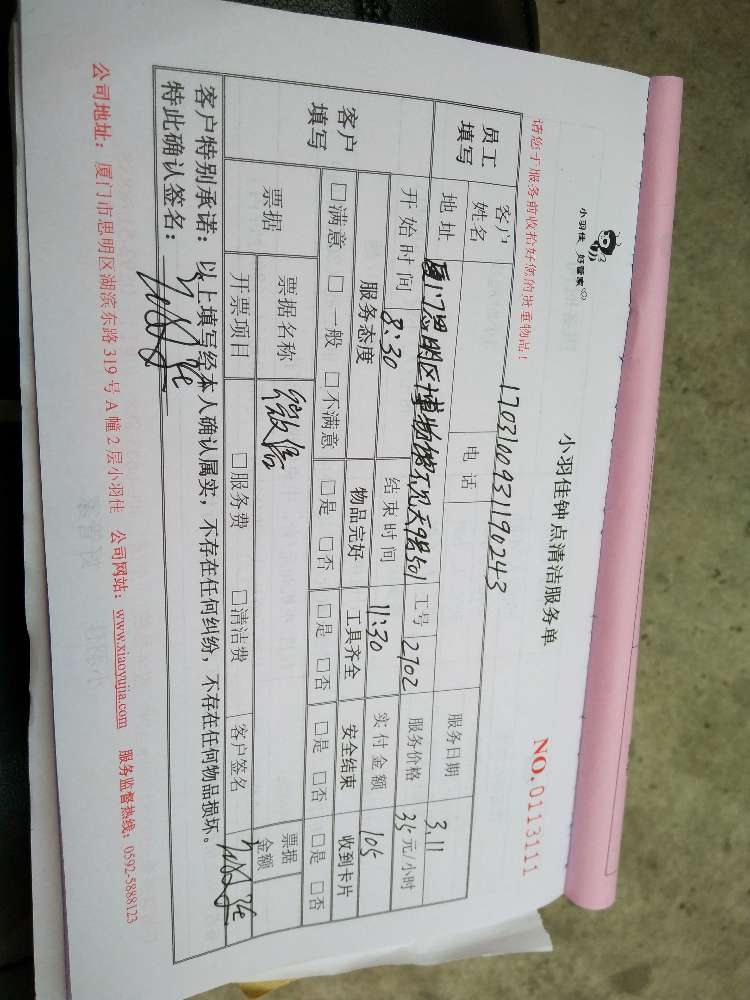 小羽佳 好管家
小羽佳钟点清洁服务单
请您于服务前收拾好您的贵重物品！
NO.0113111
1703100931190243
员工填写 客户姓名 电话 服务日期 3.11
地址 厦门思明区博物馆 501 工号 2702 服务价格 35元/小时
开始时间 8:30 结束时间 11:30 实付金额 105
客户填写 服务态度 物品完好 工具齐全 安全结束 收到卡片
□满意 □一般 □不满意 □是 □否 □是 □否 □是 □否 □是 □否
票据 票据名称 微信 票据金额
开票项目 □服务费 □清洁费 客户签名
客户特别承诺：以上填写经本人确认属实，不存在任何纠纷，不存在任何物品损坏。
特此确认签名：
公司地址：厦门市思明区湖滨东路319号A幢2层小羽佳 公司网站：www.xiaoyujia.com 服务监督热线：0592-5888123